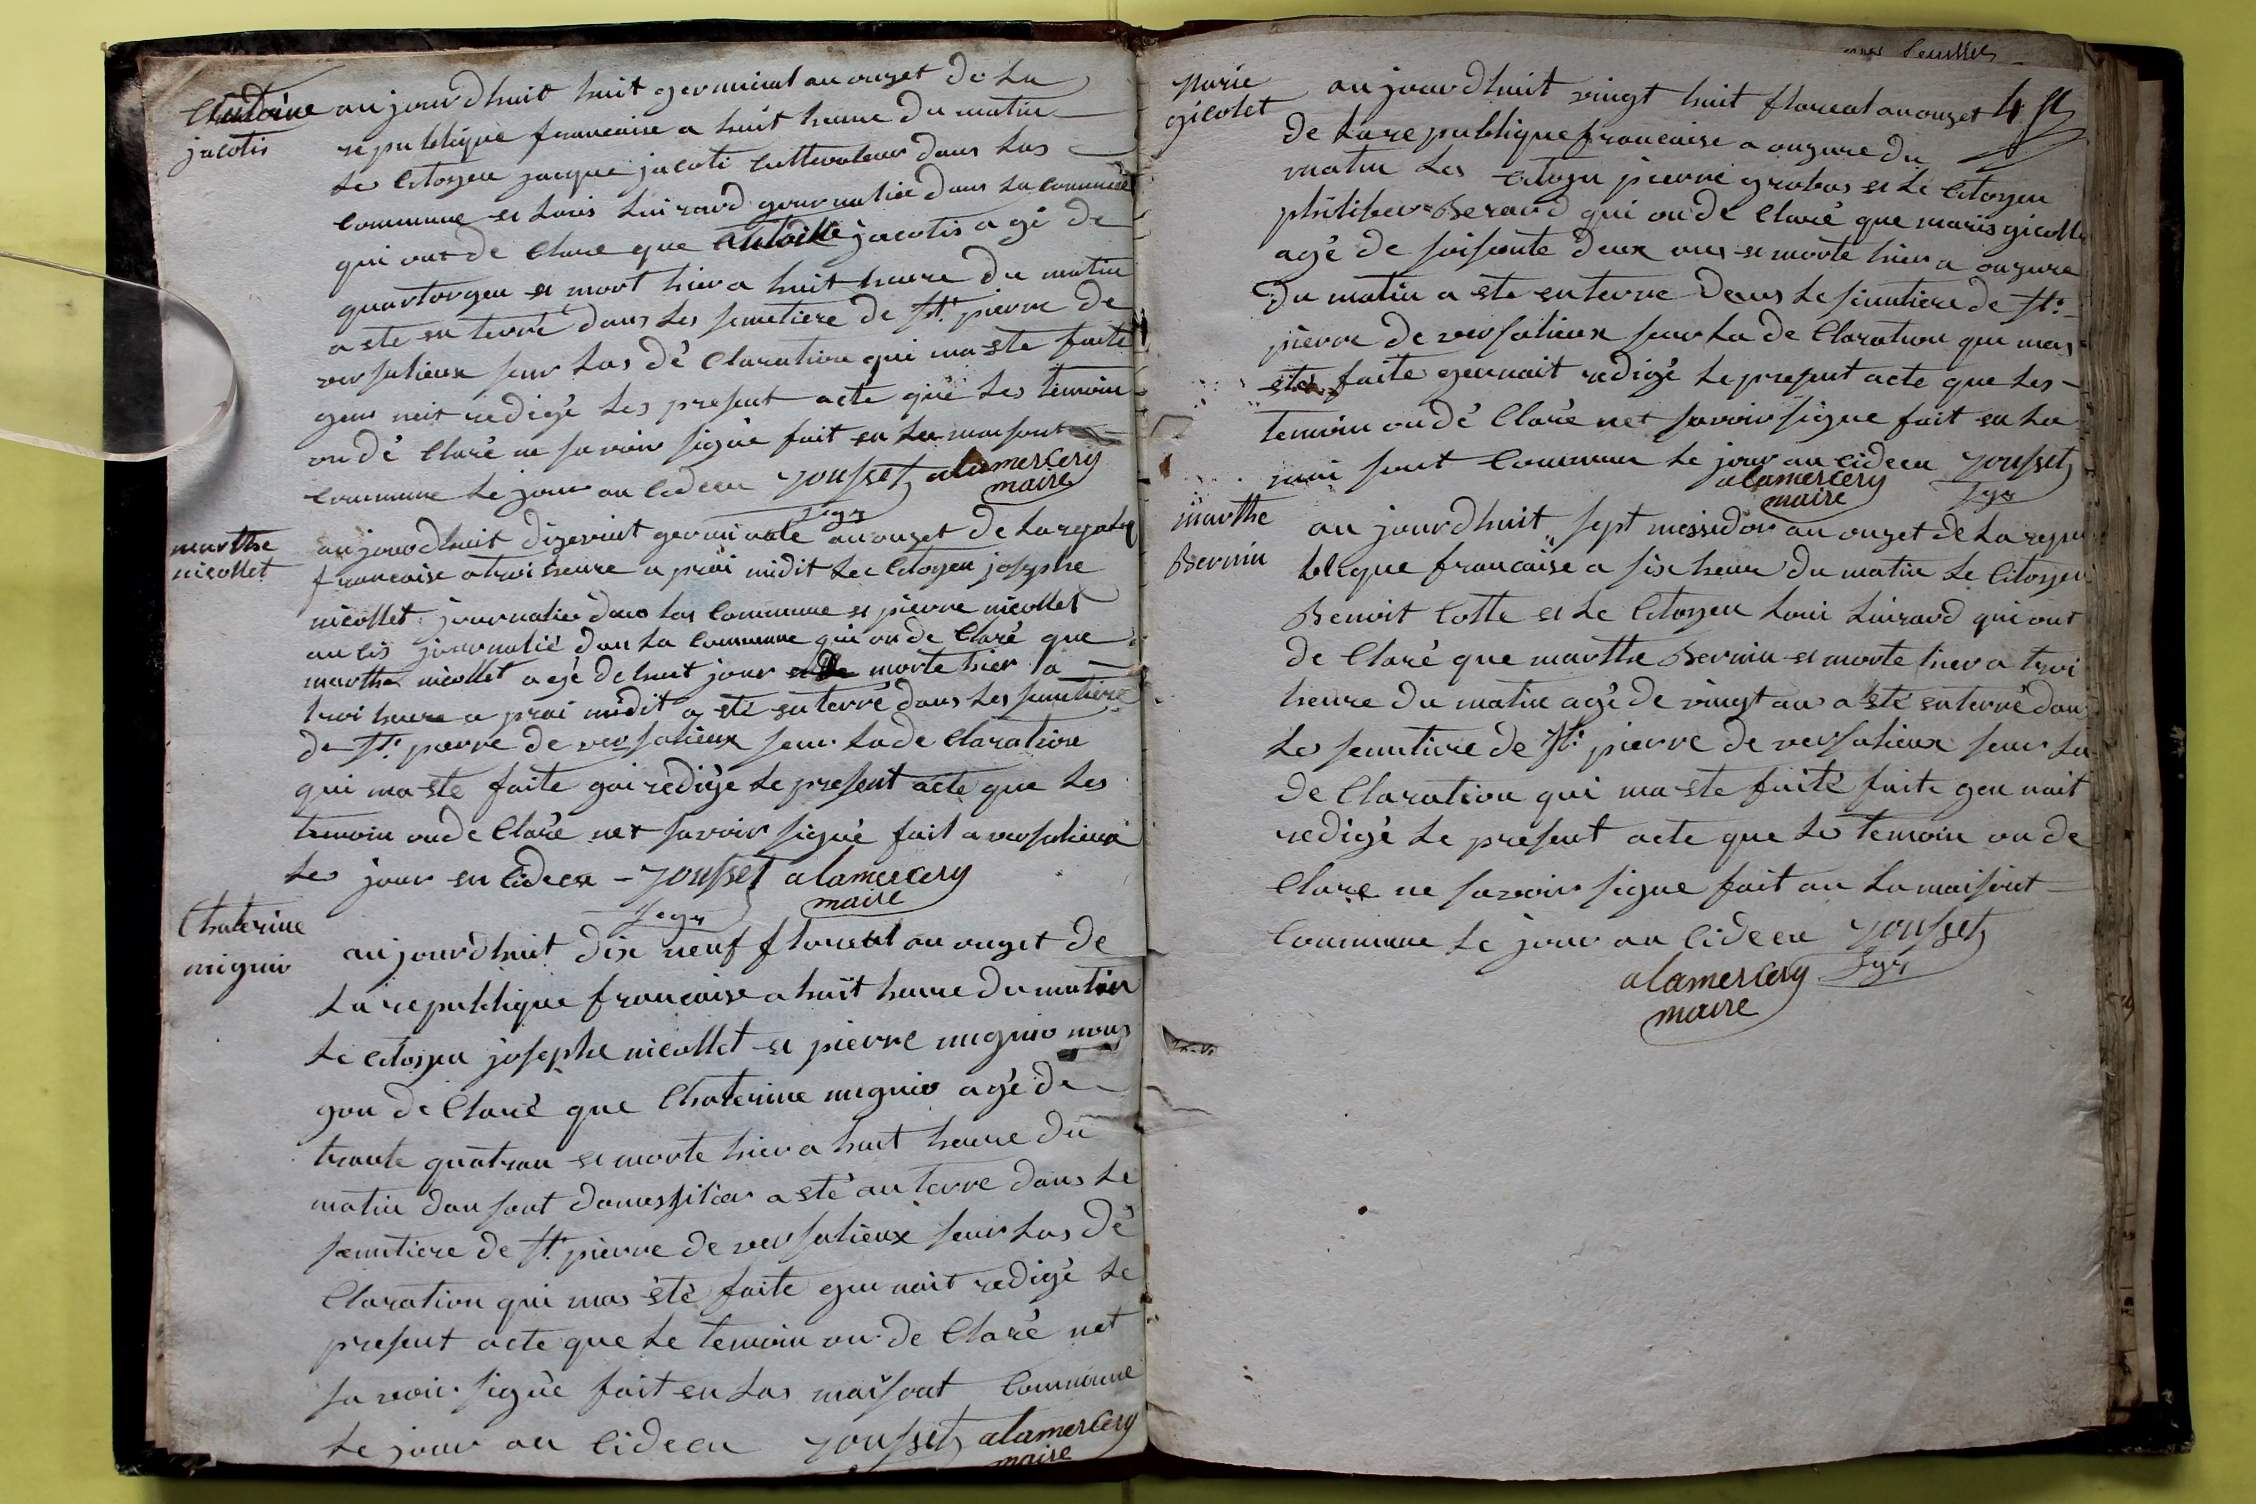 jacotis
aujourdhuit huit germinal an onzet de La
republique francaise a huit heure du matin
Le Citoyen jacque jacoti cultivateur dans Las
Commune et Louis Luirard journalier dans La Commune
qui ont de Clare que jacotis agé de
et mort hier a huit heure du matin
a ete en terré dans Les semetiere de St. pierre de
versalieux seur Las dé Claration qui ma ete faite
redigé Les present acte que Les temoin
on dé Claré ne savoir signé fait en La maisont
Commune Le jour an cideen yousset alamercery
maire
marthe
nicollet
aujourdhuit dizevuit germinale an onzet de La
francaise a troi heure a prai midit Le Citoyen josephe
nicollet journalier dans Las Commune et pierre nicollet
journalié dan La Commune qui on de Claré que
marthe nicollet agé de huit jour morte hier a
troi heure a prai midit a eté en terré dans Les semetiere
de St. pierre de versalieux seur La de Claration
qui ma ete faite gai redigé Le present acte que Les
temoin on de Claré net savoir signé fait a versalieux
Les jour en cideen - yousset alamercery
maire
Chaterine
mignio
aujourdhuit dix neuf floreal an onzet de
La republique francaise a huit heure du matin
Le Citoyen josephe nicollet et pierre mignio nous
gon de Claré que Chaterine mignio agé de
trante quatran et morte hier a huit heure du
matin dan sont domissilier a eté an terre dans Le
semetiere de St. pierre de versalieux seur Las dé
Claration qui mas eté faite gen nait redigé Le
present acte que Le temoin on de Claré net
sa voir signé fait en Las maisont Commune
Le jour an cideen yousset alamercery
maire
Marie
gicolet
aujourdhuit vingt huit floreal an onzet 4
de La republique francaise a onzure du
matin Les Citoyen pierre grobos et Le Citoyen
philiber Berard qui on de Claré que maris
agé de soisante deux ans et morte hier a onzure
Du matin a ete en terre dans Le semetiere de St.
pierre de versalieux seur La de Claration que mas
eté faite gennait redigé Le present acte que Les
temoin on dé Claré net savoir signe fait en La
mai sont Commune Le jour an cideen yousset
alamercery
maire
marthe
Bernin
au jourdhuit sept messidor an onzet de La repu
blique francaise a six heure du matin Le Citoyen
Benoit Cotte et Le Citoyen Loui Luirard qui ont
de Claré que marthe Bernin et morte hier a troi
heure du matin agé de vingt an a eté en terré dan
Le semetiere de St. pierre de versalieux seur La
de Claration qui ma ete faité faite gen nait
redigé Le present acte que Le temoin on de
Claré ne savoir signe fait an La maisont
Commune Le jour an cideen yousset
alamercery
maire